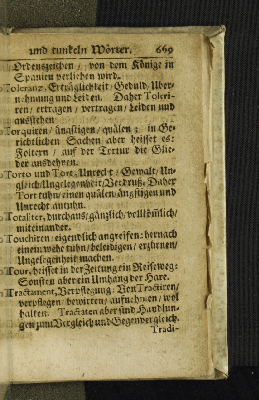 und tunckeln Wörter. 669
Ordenszeichen / von dem Könige in
Spanien verliehen wird.
Toleranz, Erträglichkeit / Geduld, Uber-
nehmung und Leiden. Daher Toleri-
ren / ertragen / vertragen / Leiden und
ausstehen
Torquiren / änastigen / quälen; in Ge-
richtlichen Sachen aber heisset es:
Foltern / auf der Tortur die Glie-
der ausdehnen.
Torto und Tort, Unrecht / Gewalt / Un-
gleich / Ungelegenheit / Verdruß. Daher
Tort tuhn / einen quälen / ängstigen und
Unrecht antuhn.
Totaliter, durchaus / gäntzlich / volkömlich /
miteinander.
Touchiren / eigendlich angreifen: hernach
einem wehe tuhn / beleidigen / erzürnen /
Ungelegenheit machen.
Tour, heisset in der Zeitung ein Reiseweg:
Sonsten aber ein Umhang der Hare.
Tractament, Verpflegung: Von Tractiren /
verpflegen / bewirten / aufnehmen / wol
halten. Tractaten aber sind Handlun-
gen zum Vergleich und Gegenvergleich.
Tradi-